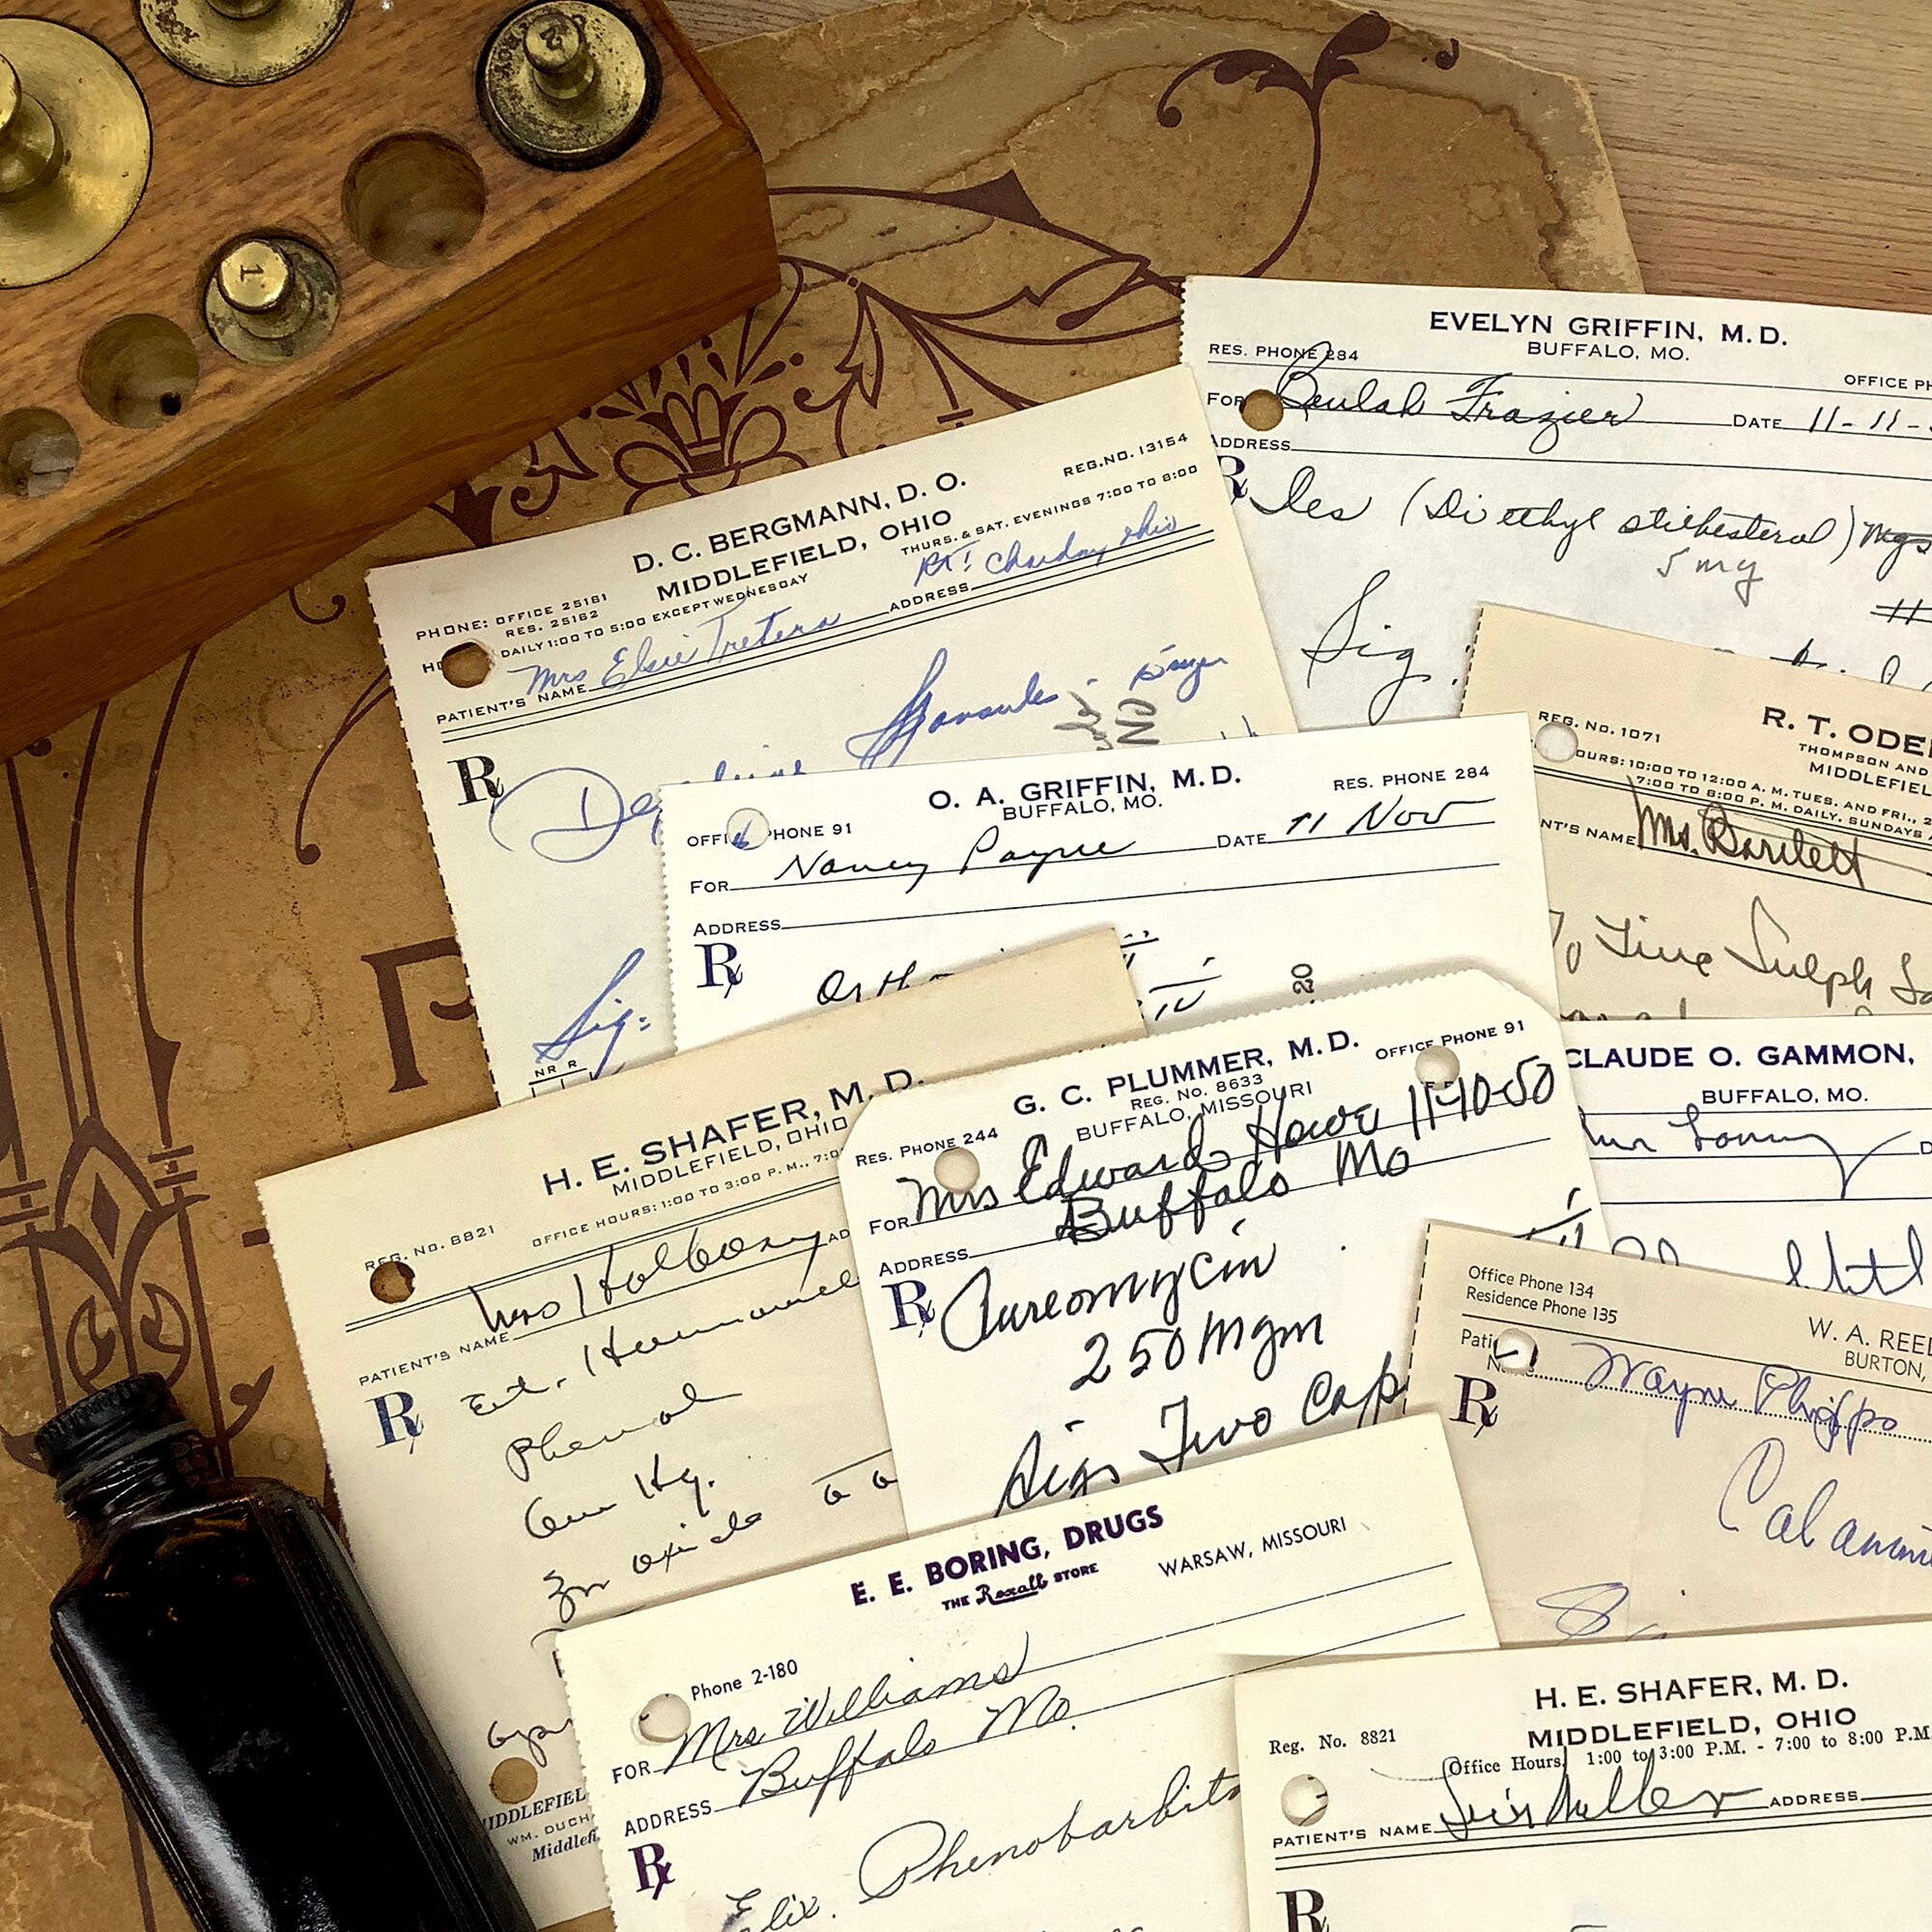 2
1
P
EVELYN GRIFFIN, M.D.
BUFFALO, MO.
RES. PHONE 284
OFFICE PH
FOR Beulah Frazier DATE 11-11-
ADDRESS
R Des (Di ethyl stilbesterol) Mgs
5 mg
Sig.
D. C. BERGMANN, D. O.
MIDDLEFIELD, OHIO
REG.NO. 13154
PHONE: OFFICE 25161
RES. 25162
THURS. & SAT. EVENINGS 7:00 TO 8:00
DAILY 1:00 TO 5:00 EXCEPT WEDNESDAY
PATIENT'S NAME Mrs Elsie ADDRESS Chardon Ohio
R
Sig:
NR R
REG. No. 1071
R. T. ODE
THOMPSON AND
MIDDLEFIEL
OURS: 10:00 TO 12:00 A. M. TUES. AND FRI., 2
7:00 TO 8:00 P. M. DAILY, SUNDAYS
NT'S NAME Mrs. Bartlett
Sulph
O. A. GRIFFIN, M.D.
BUFFALO, MO.
RES. PHONE 284
OFFI PHONE 91
FOR Nancy Payne DATE 11 Nov
ADDRESS
R
20
CLAUDE O. GAMMON,
BUFFALO, MO.
D
H. E. SHAFER, M. D.
MIDDLEFIELD, OHIO
REG. NO. 8821
OFFICE HOURS: 1:00 TO 3:00 P. M., 7:0
PATIENT'S NAME Mrs AD
R Ext.
Phenol
Zn oxide
MIDDLEFIEL
WM. DUCH
Middlefi
G. C. PLUMMER, M.D.
REG. NO. 8633
BUFFALO, MISSOURI
OFFICE PHONE 91
RES. PHONE 244
FOR Mrs Edward Howe 11-10-50
ADDRESS Buffalo Mo
R Aureomycin
250 mgm
Sigs Two Caps
Office Phone 134
Residence Phone 135
W. A. REED
BURTON,
Patient's Name Wayne Phipps
R
Calamin
E. E. BORING, DRUGS
THE Rexall STORE
WARSAW, MISSOURI
Phone 2-180
FOR Mrs Williams
ADDRESS Buffalo Mo.
R
Elix. Phenobarbita
H. E. SHAFER, M. D.
MIDDLEFIELD, OHIO
Reg. No. 8821
Office Hours 1:00 to 3:00 P.M. - 7:00 to 8:00 P.M.
PATIENT'S NAME ADDRESS
R